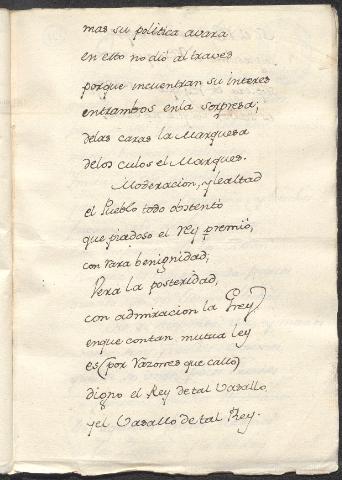 mas su politica avara
en esto no dió al traves
porque incuentran su interes
entrambos enla sorpresa;
delas caras la Marquesa
delos culos el Marques.
Moderacion, y lealtad
el Pueblo todo obstentò
que piadoso el rey premiò,
con rara benignidad;
Vera la posteridad,
con admiracion la Grey
enque contan mutua ley
es (por razones que callo)
digno el Rey detal Vasallo
y el Vasallo detal Rey.